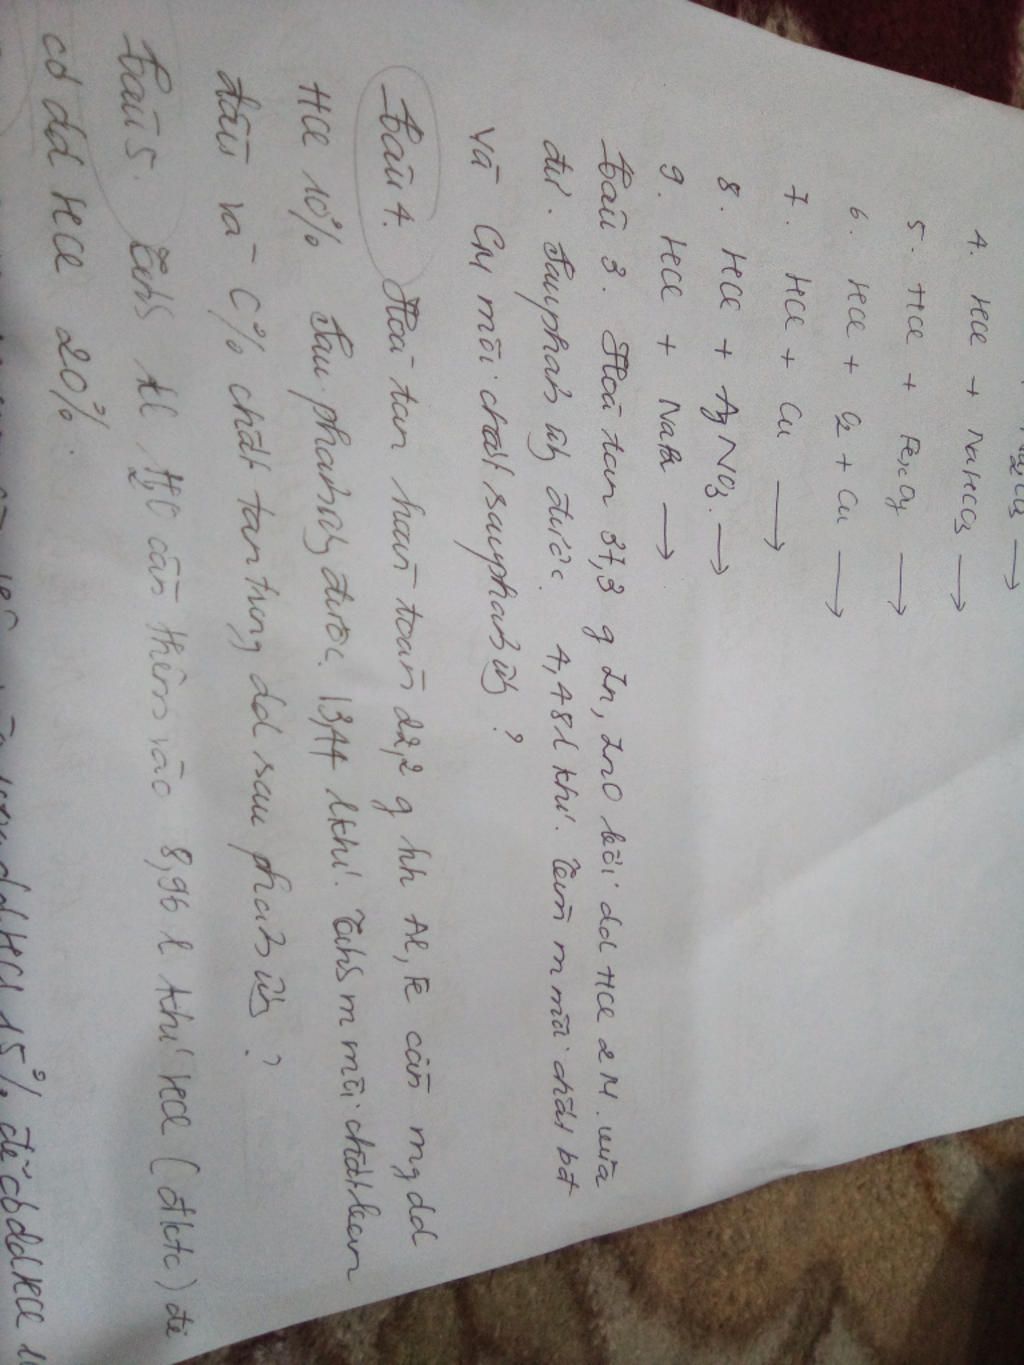 4. HCl + NaHCO3 →
5. HCl + FexOy →
6. HCl + O2 + Cu →
7. HCl + Cu →
8. HCl + AgNO3. →
9. HCl + →
Bài 3. Hoà tan 37,3 g Zn, ZnO bởi dd HCl 2M. vừa
đủ. Sau phản ứng được 4,48l khí. Tính m mỗi chất bđ
và CM mỗi chất sau phản ứng?
Bài 4. Hoà tan hoàn toàn 22,2 g hh Al, Fe cần m g dd
HCl 10% Sau phản ứng được. 13,44 l khí. Tính m mỗi chất ban
đầu và C% chất tan trong dd sau phản ứng?
Bài 5. Tính kl H2O cần thêm vào 8,96 l khí HCl (đktc) để
có dd HCl 20%.
15% để có dd HCl